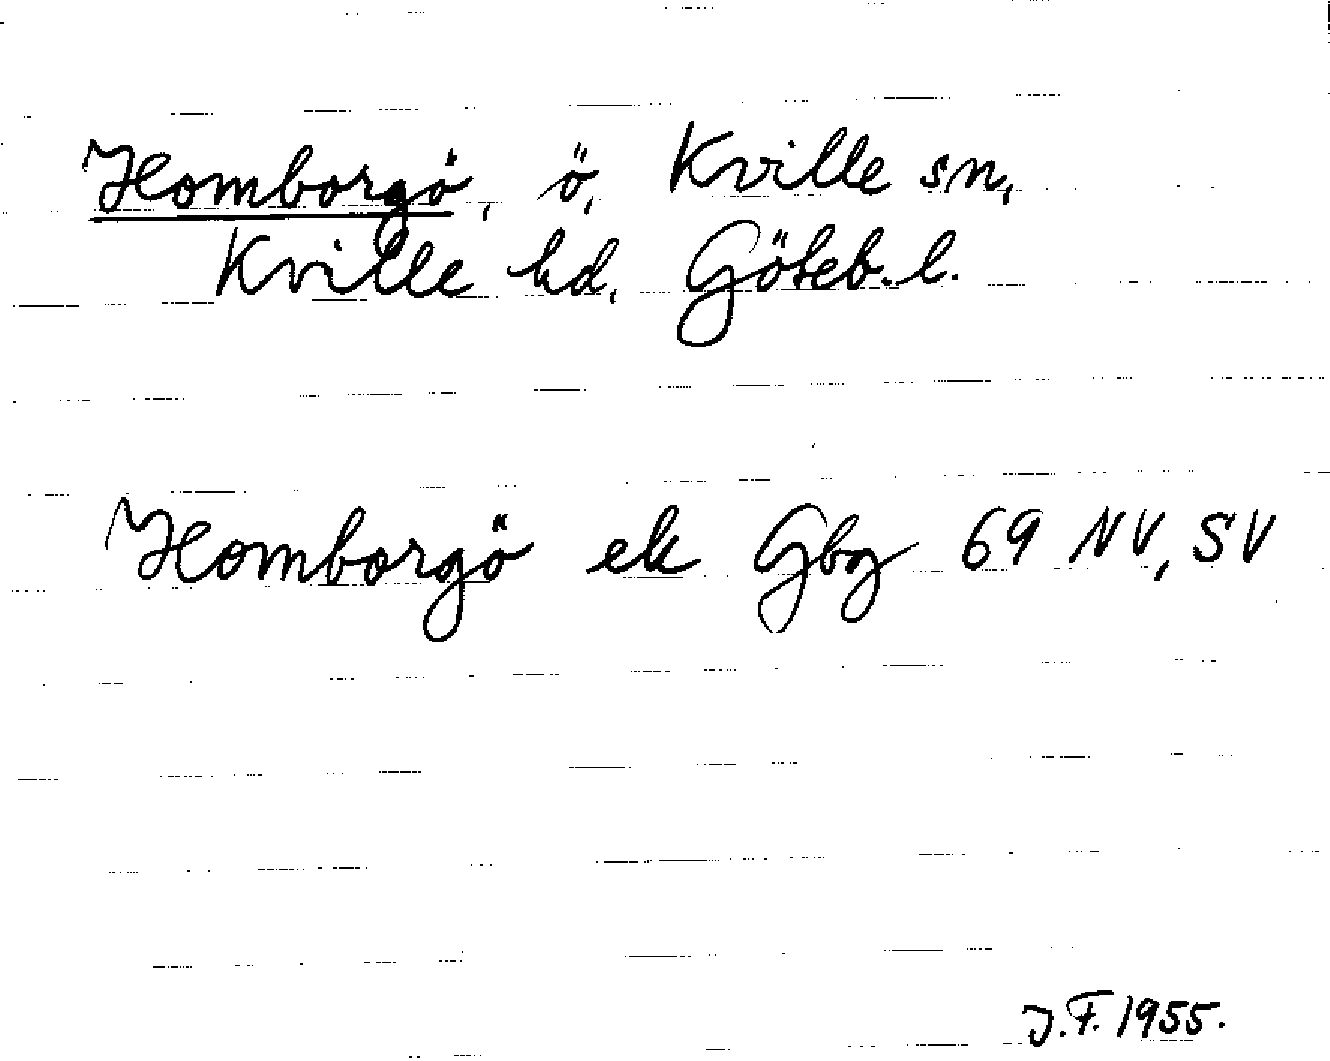 Homborgö, ö, Kville sn,
Kville hd, Göteb. l.
Homborgö ek Gbg 69 NV, SV
J.F. 1955.